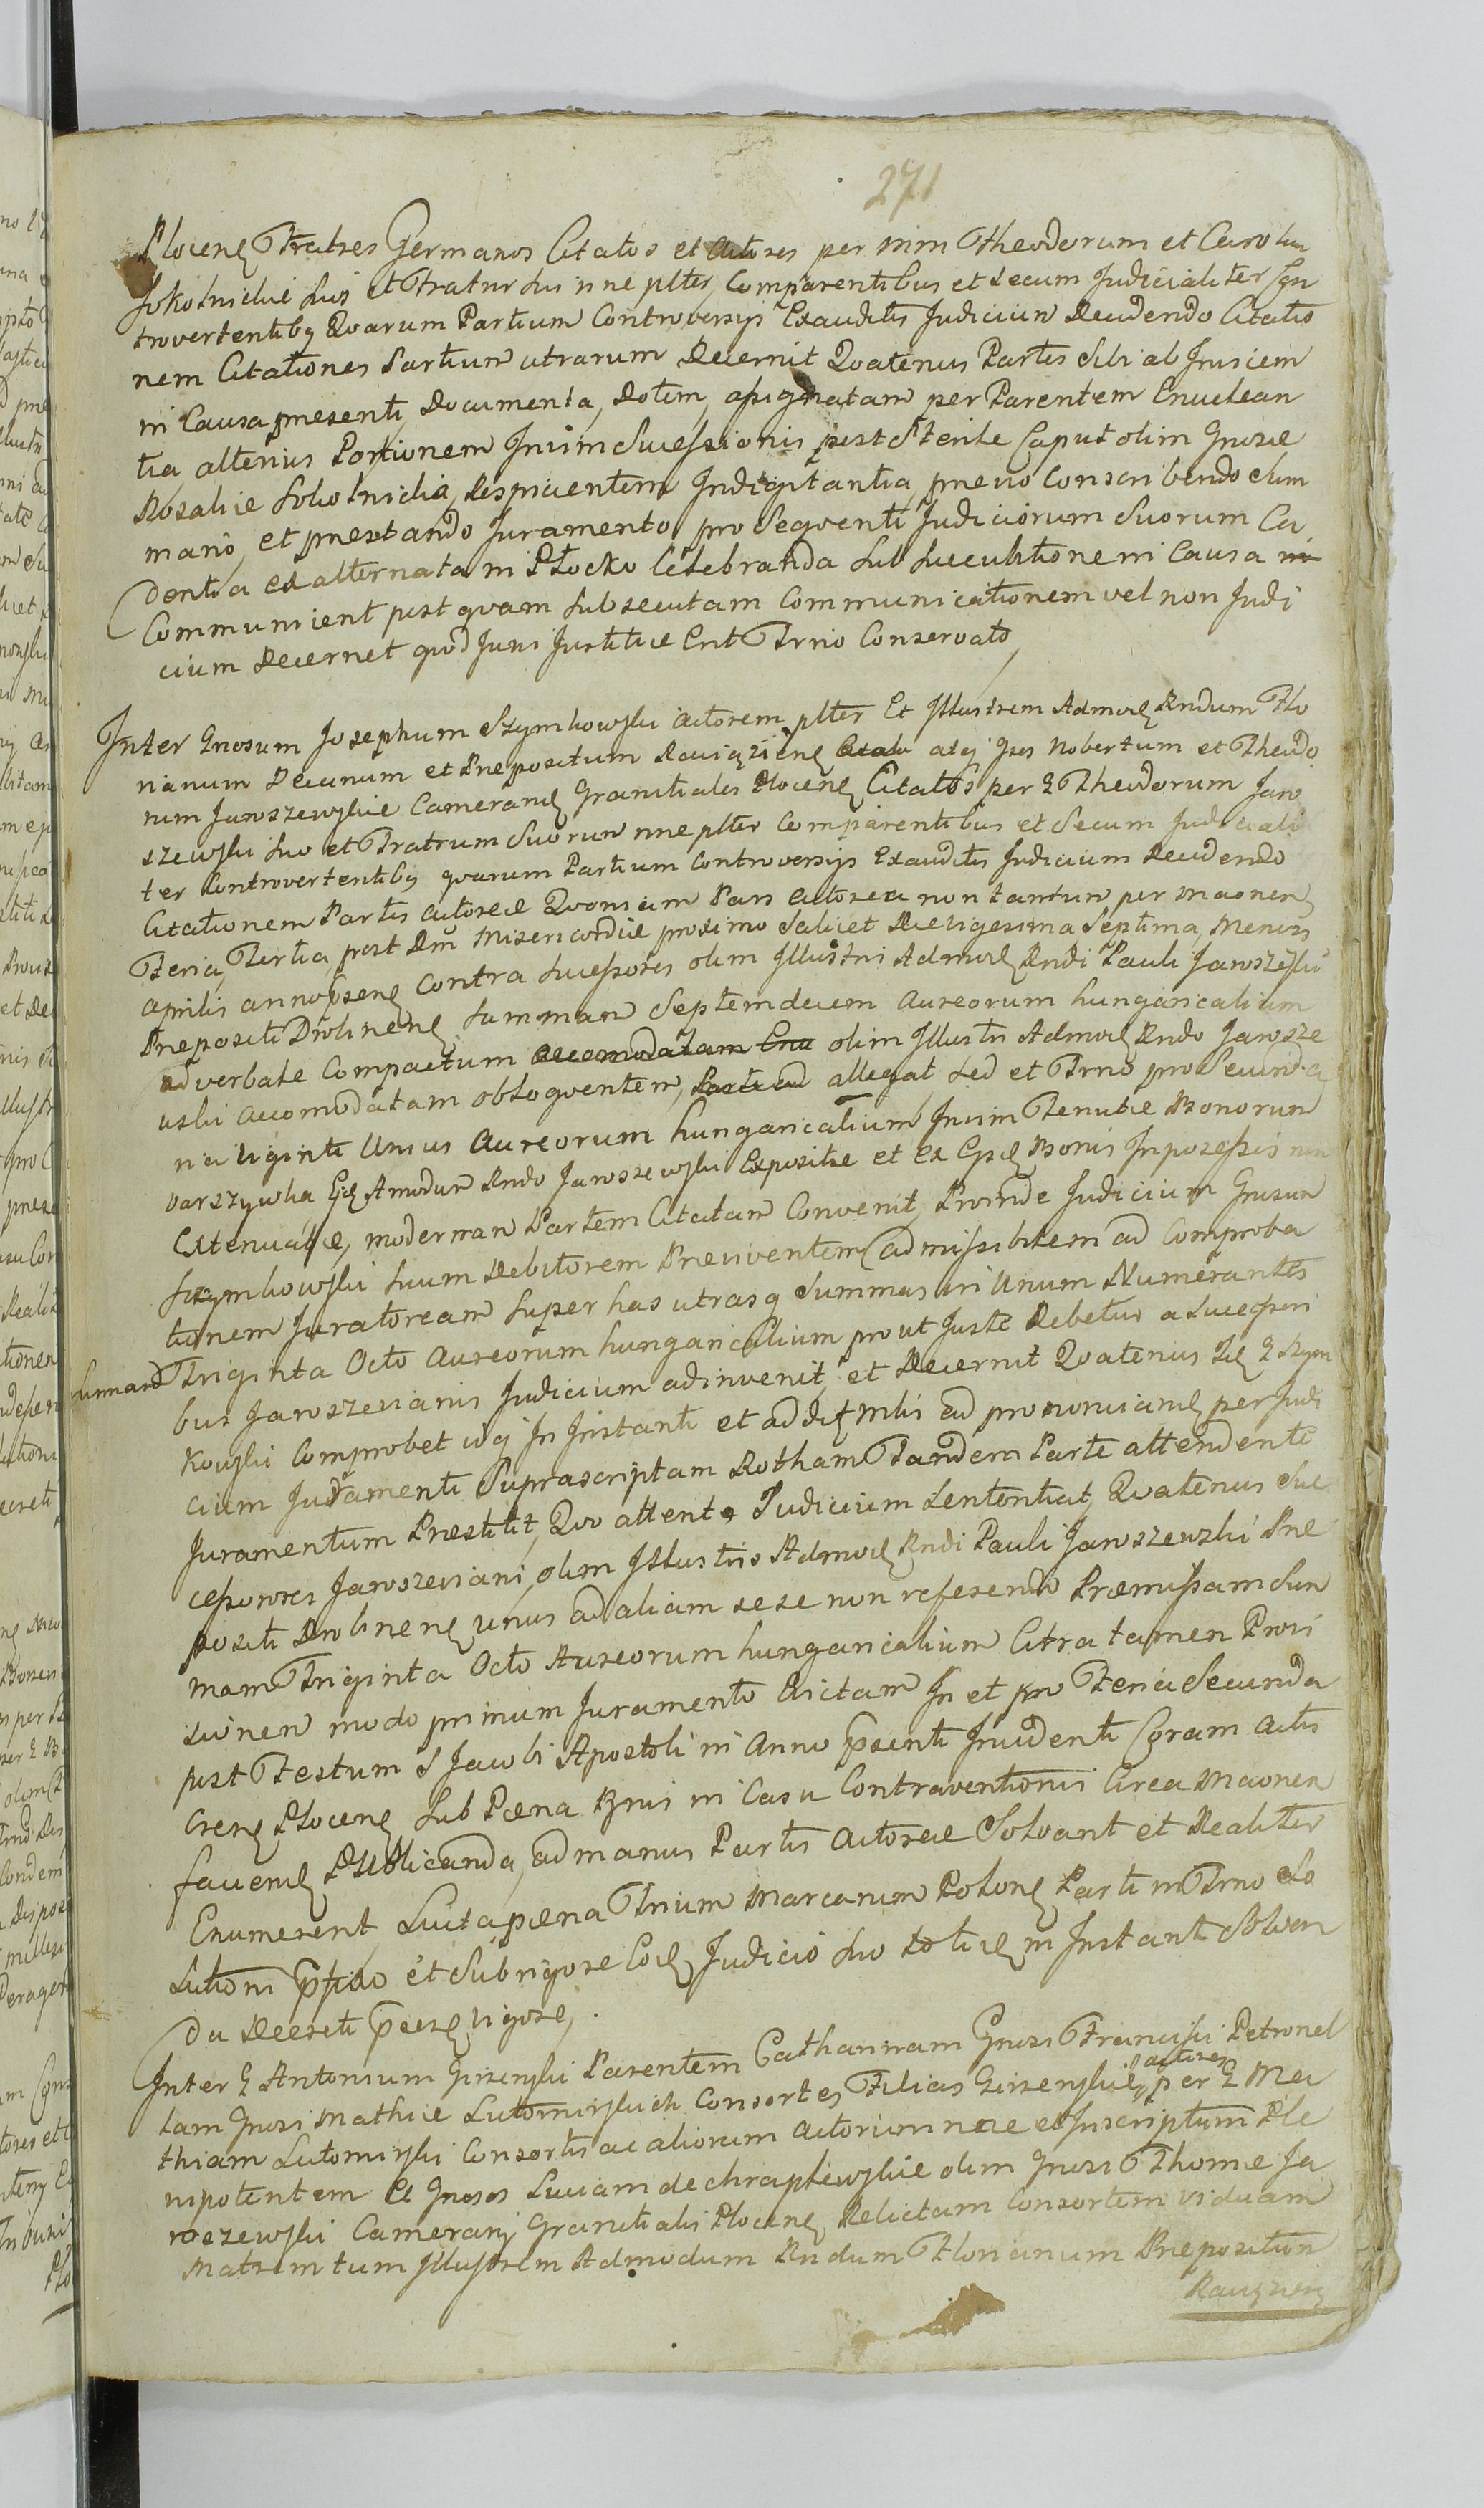 271
Plocens Fratres Germanos Citatos et Actores per mm Theodorum et Carolum
Sokolnickie suo et Fratrum sui nne plter Comparentibus et secum Judicialiter Con
trovertentibq Quarum Partium Controversys Exauditis Judicium Decidendo Citatio
nem Citationes Partium utrarum Decernit Quatenus Partes Sibi ab Invicem
in Causa presenti, Documenta, Dotem, assignatam per Parentem Enuclean
tia alterius Portionem Inim Sucessionis post Sterile Caput olim Gnosae
Rosaliae Sokolnickia, respicientem Indigitantia, previo Conscribendo elim
mano, et prestando Juramento pro Seqventi Judiciorum Suorum Ca
dentia ex alternata in Płocko Celebranda Sub Succubitione in Causa
Communicent post qvam Subsecutam Communicationem vel non Judi
cium Decernet quod Juri Justitiae Erit Trno Conservato,
Inter Gnosum Josephum Szymkowski actorem plter Et Illustrem Admod Rndum Flo
rianum Decanum et Prepositum Raciąziens atq Gsos Nobertum et Theodo
rum Jaroszewskie Camerand Granitiales Plocens Citatos per G Theodorum Jaro
szewski suo et Fratrum Suorum nne plter Comparentibus et Secum Judiciali
ter Controvertentibq quarum Partium Controversys Exauditis Judicium Decidendo
Citationem Partis actoreae Quoniam Pars actorea non tantum per Maonen
Feria Tertia post Dm Misericordiae proximo Scilicet Die vigesima Septima, Mensis
aprilis anno psens Contra Sucessores olim Illustri Admod Rndi Pauli Jaroszewski
Prepositi Drobinens Summam Septemdecim aureorum hungaricalium
ad verbale Compactum olim Illustri Admod Rndo Jarosze
wski accomodatam obloqventem, allegat sed et Trno pro Secunda
ria viginti Unius aureorum hungaricalium Inim Tenutae Bonorum
Warszywka Gd Amodum Rndo Jaroszewski Expositae et Ex Eysd Bonis Inposessis non
Extenuatae, modernam Partem Citatam Convenit, Proinde Judicium Gnosum
Szymkowski suum Debitorem Previventem admissibilem ad Comproba
tionem Juratoream super has utrasq Summas in Unum Numerantes
Summam Triginta Octo aureorum hungaricalium prout Juste Debetur a Sucessori
bus Jaroszevianis Judicium adinvenit, et Decernit Quatenus Id G Szym
kowski Comprobet idq In Instanti et ad ad pronunciand per Judi
cium Juramenti Suprascriptam Rotham Tandem Parte attendente
Juramentum Prestitit, Quo attento Judicium Sententiat, Quatenus Suc
cessores Jaroszeviani, olim Illustris Admod Rndi Pauli Jaroszewski Pre
positi Drobinens unus ad alium sese non referendo Praemissam Sum
mam Triginta Octo Aureorum hungaricalium Citra tamen Provi
sionem modo primum Juramento Evictam In et pro Feria Secunda
post Festum S Jacobi Apostoli in anno psenti Incidenti Coram actis
Crens Plocens Sub Paena Bnis in Casu Contraventionis Circa Maonen
faciend Publicanda, ad manus Partis actoreae Solvant et Realiter
Enumerent, Luita paena Trium Marcarum Polons Parti in Trno So
lutioni et Sub rigore Eod Judicio suo in Instanti Solven
da Decreti pntis vigore,
Inter G Antonium Girzynski Parentem Catharinam Gnosi Francisci Petronel
lam Gnosi Mathiae Lutomirskich Consortes Filias Girzynskie, actores per G Ma
thiam Lutomirski Consortis ac aliorum actorum nne et Inscriptum Ple
nipotentem Et Gnosos Luciam de Chraplewskie olim Gnosi Thomae Ja
roszewski Camerarij Granitialis Plocens, Relictam Consortem viduam
Matrem tum Illustrem Admodum Rndum Florianum Prepositum
Raciąziens